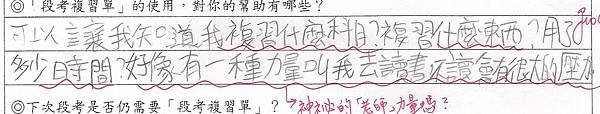 ◎「段考複習單」的使用，對你的幫助有哪些？
可以讓我知道我複習什麼科目？複習什麼東西？用了
多少時間？好像有一種力量叫我去讀書不讀會有很大的壓力
◎下次段考是否仍需要「段考複習單」？→神秘的「老師」力量嗎？